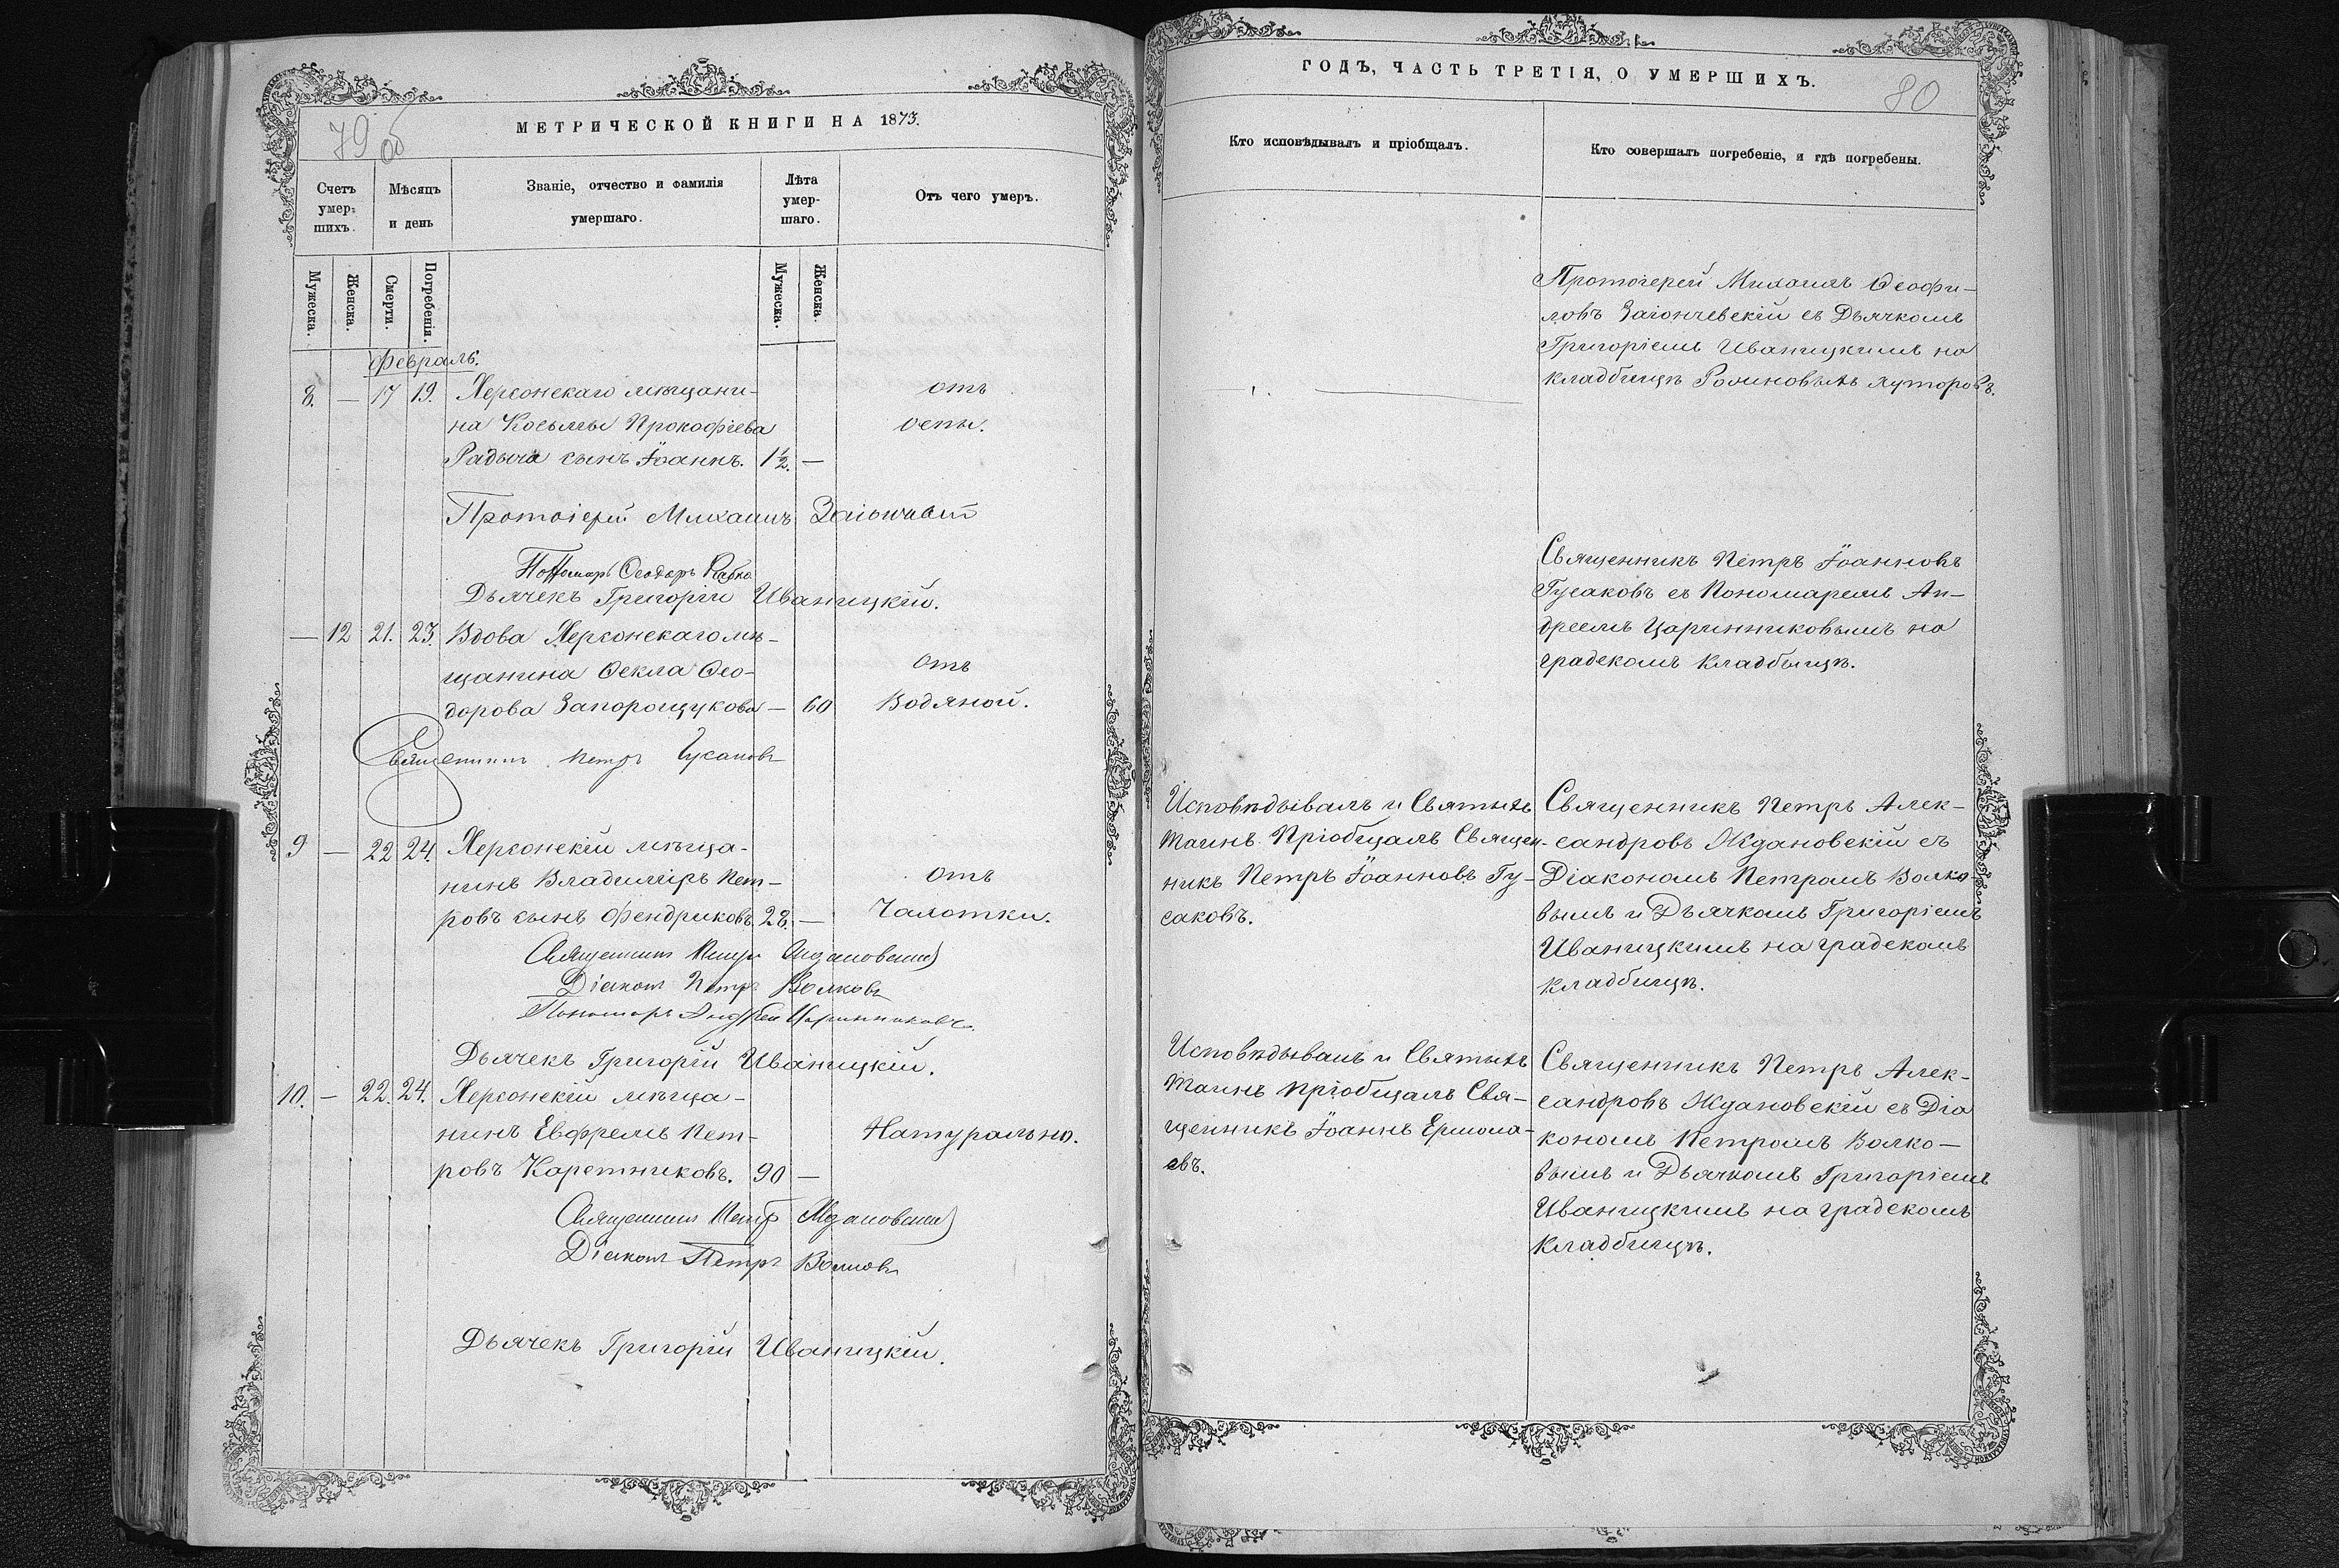 79 об
МЕТРИЧЕСКОЙ КНИГИ НА 1873.
Счетъ умер- шихъ.
Мѣсяцъ и день
Званіе, отчество и фамилія умершаго.
Лѣта умер- шаго.
Отъ чего умеръ.
Мужеска.
Женска.
Смерти.
Погребенія.
Мужеска.
Женска.
Февраль.
8. — 17 19. Херсонскаго мѣщани- отъ
на Косьмы Прокофіева оспы.
Радыча сынъ Іоаннъ. 1½. —
Протоіерей Михаилъ
Пономарь Ѳеодоръ
Дьячекъ Григорій Иваницкій.
— 12 21. 23. Вдова Херсонскаго мѣ-
щанина Ѳекла Ѳео- отъ
дорова Запорощукова — 60 Водяной.
Священникъ Петръ Гусаковъ
9 — 22 24. Херсонскій мѣща-
нинъ Владиміръ Пет- отъ
ровъ сынъ Фендриковъ. 28. — Чахотки.
Священникъ Петръ Ждановскій
Діаконъ Петръ Волковъ
Пономарь Андрей Царинниковъ.
Дьячекъ Григорій Иваницкій.
10. — 22. 24. Херсонскій мѣща-
нинъ Евфремъ Пет- Натурально.
ровъ Каретниковъ. 90 —
Священникъ Петръ Ждановскій
Діаконъ Петръ Волковъ
Дьячекъ Григорій Иваницкій.
ГОДЪ, ЧАСТЬ ТРЕТІЯ, О УМЕРШИХЪ.
80
Кто исповѣдывалъ и пріобщалъ.
Кто совершалъ погребеніе, и гдѣ погребены.
Протоіерей Михаилъ Ѳеофи-
ловъ Загончевскій съ Дьячкомъ
Григоріемъ Иваницкимъ на
кладбищѣ Рогиновыхъ хуторовъ.
Священникъ Петръ Іоанновъ
Гусаковъ съ Пономаремъ Ан-
дреемъ Царинниковымъ на
градскомъ кладбищѣ.
Исповѣдывалъ и Святыхъ
Таинъ Пріобщалъ Священ-
никъ Петръ Іоанновъ Гу-
саковъ.
Священникъ Петръ Алек-
сандровъ Ждановскій съ
Діакономъ Петромъ Волко-
вымъ и Дьячкомъ Григоріемъ
Иваницкимъ на градскомъ
кладбищѣ.
Исповѣдывалъ и Святыхъ
Таинъ пріобщалъ Свя-
щенникъ Іоаннъ Ермола-
евъ.
Священникъ Петръ Алек-
сандровъ Ждановскій съ Діа
кономъ Петромъ Волко-
вымъ и Дьячкомъ Григоріемъ
Иваницкимъ на градскомъ
Кладбищѣ.